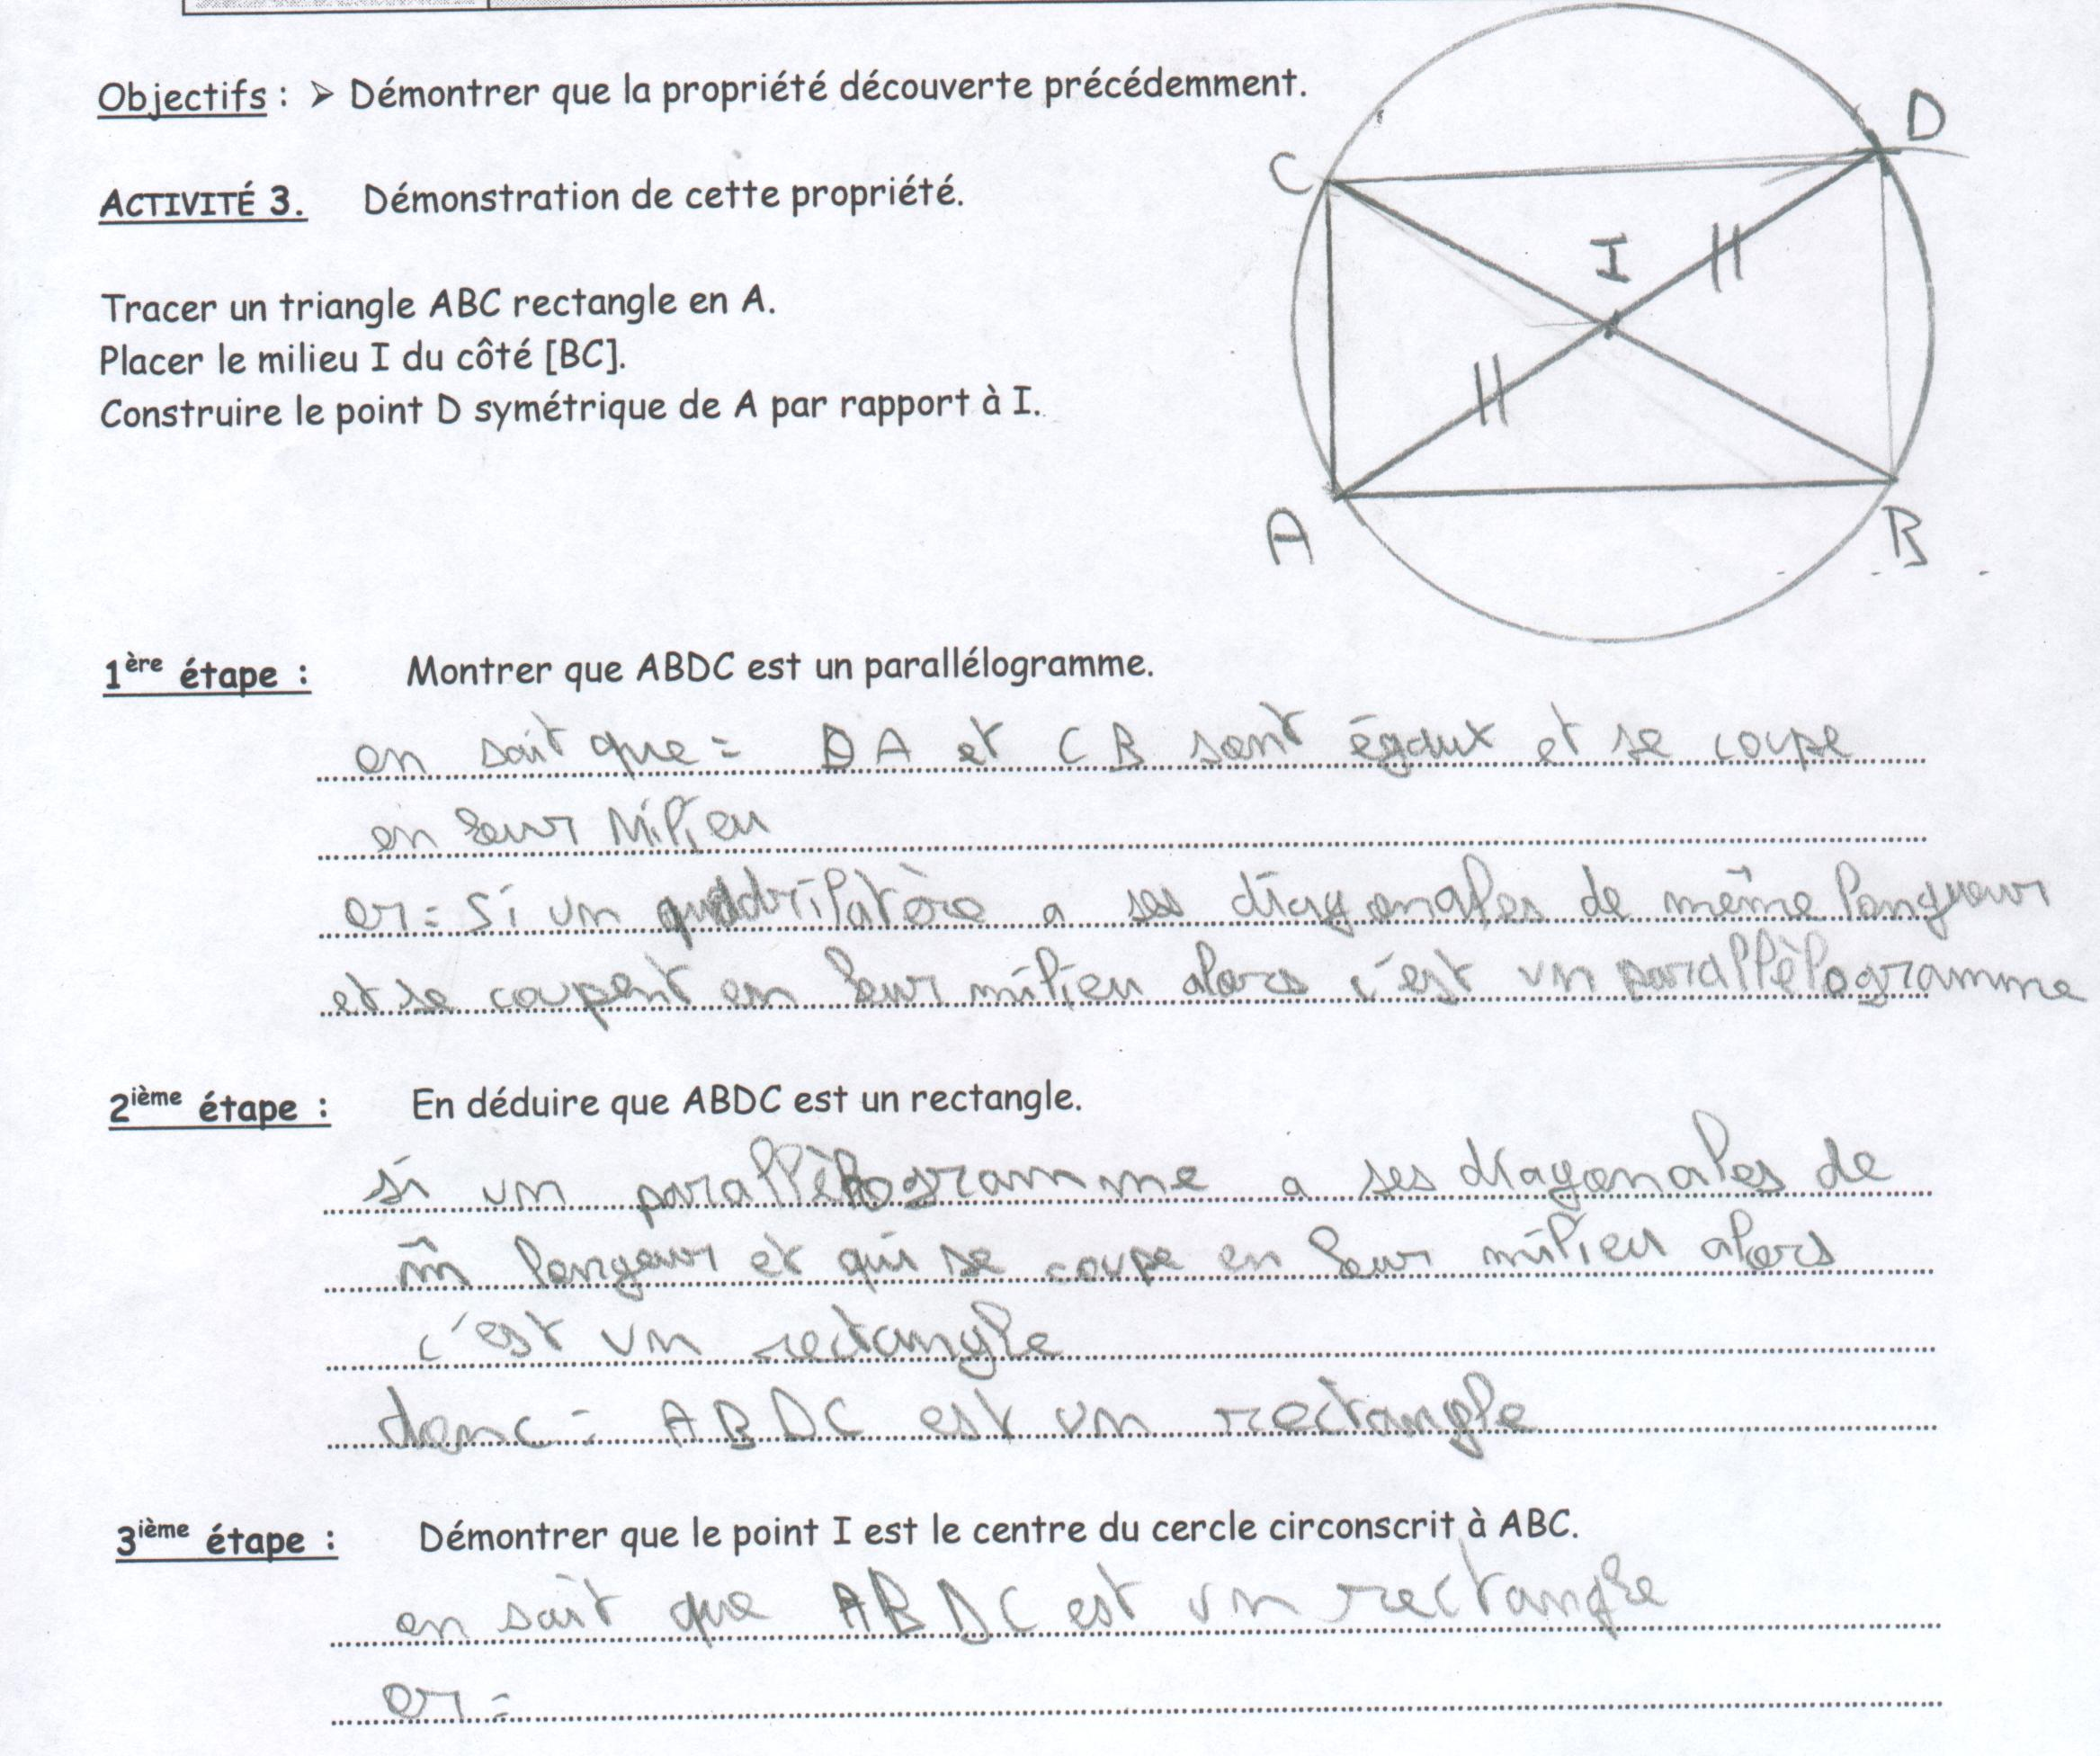 Objectifs : ➤ Démontrer que la propriété découverte précédemment.
ACTIVITÉ 3. Démonstration de cette propriété.
Tracer un triangle ABC rectangle en A.
Placer le milieu I du côté [BC].
Construire le point D symétrique de A par rapport à I.
C
D
I
A
B
1ère étape : Montrer que ABDC est un parallélogramme.
on sait que = DA et CB sont égaux et se coupe
en leur Milieu
or = si un quadrilatère a ses diagonales de même longueur
et se coupent en leur milieu alors c'est un parallèlogramme
2ième étape : En déduire que ABDC est un rectangle.
si un parallèlogramme a ses diagonales de
m̂ longeur et qui se coupe en leur milieu alors
c'est un rectangle
donc = ABDC est un rectangle
3ième étape : Démontrer que le point I est le centre du cercle circonscrit à ABC.
on sait que ABDC est un rectangle
or =